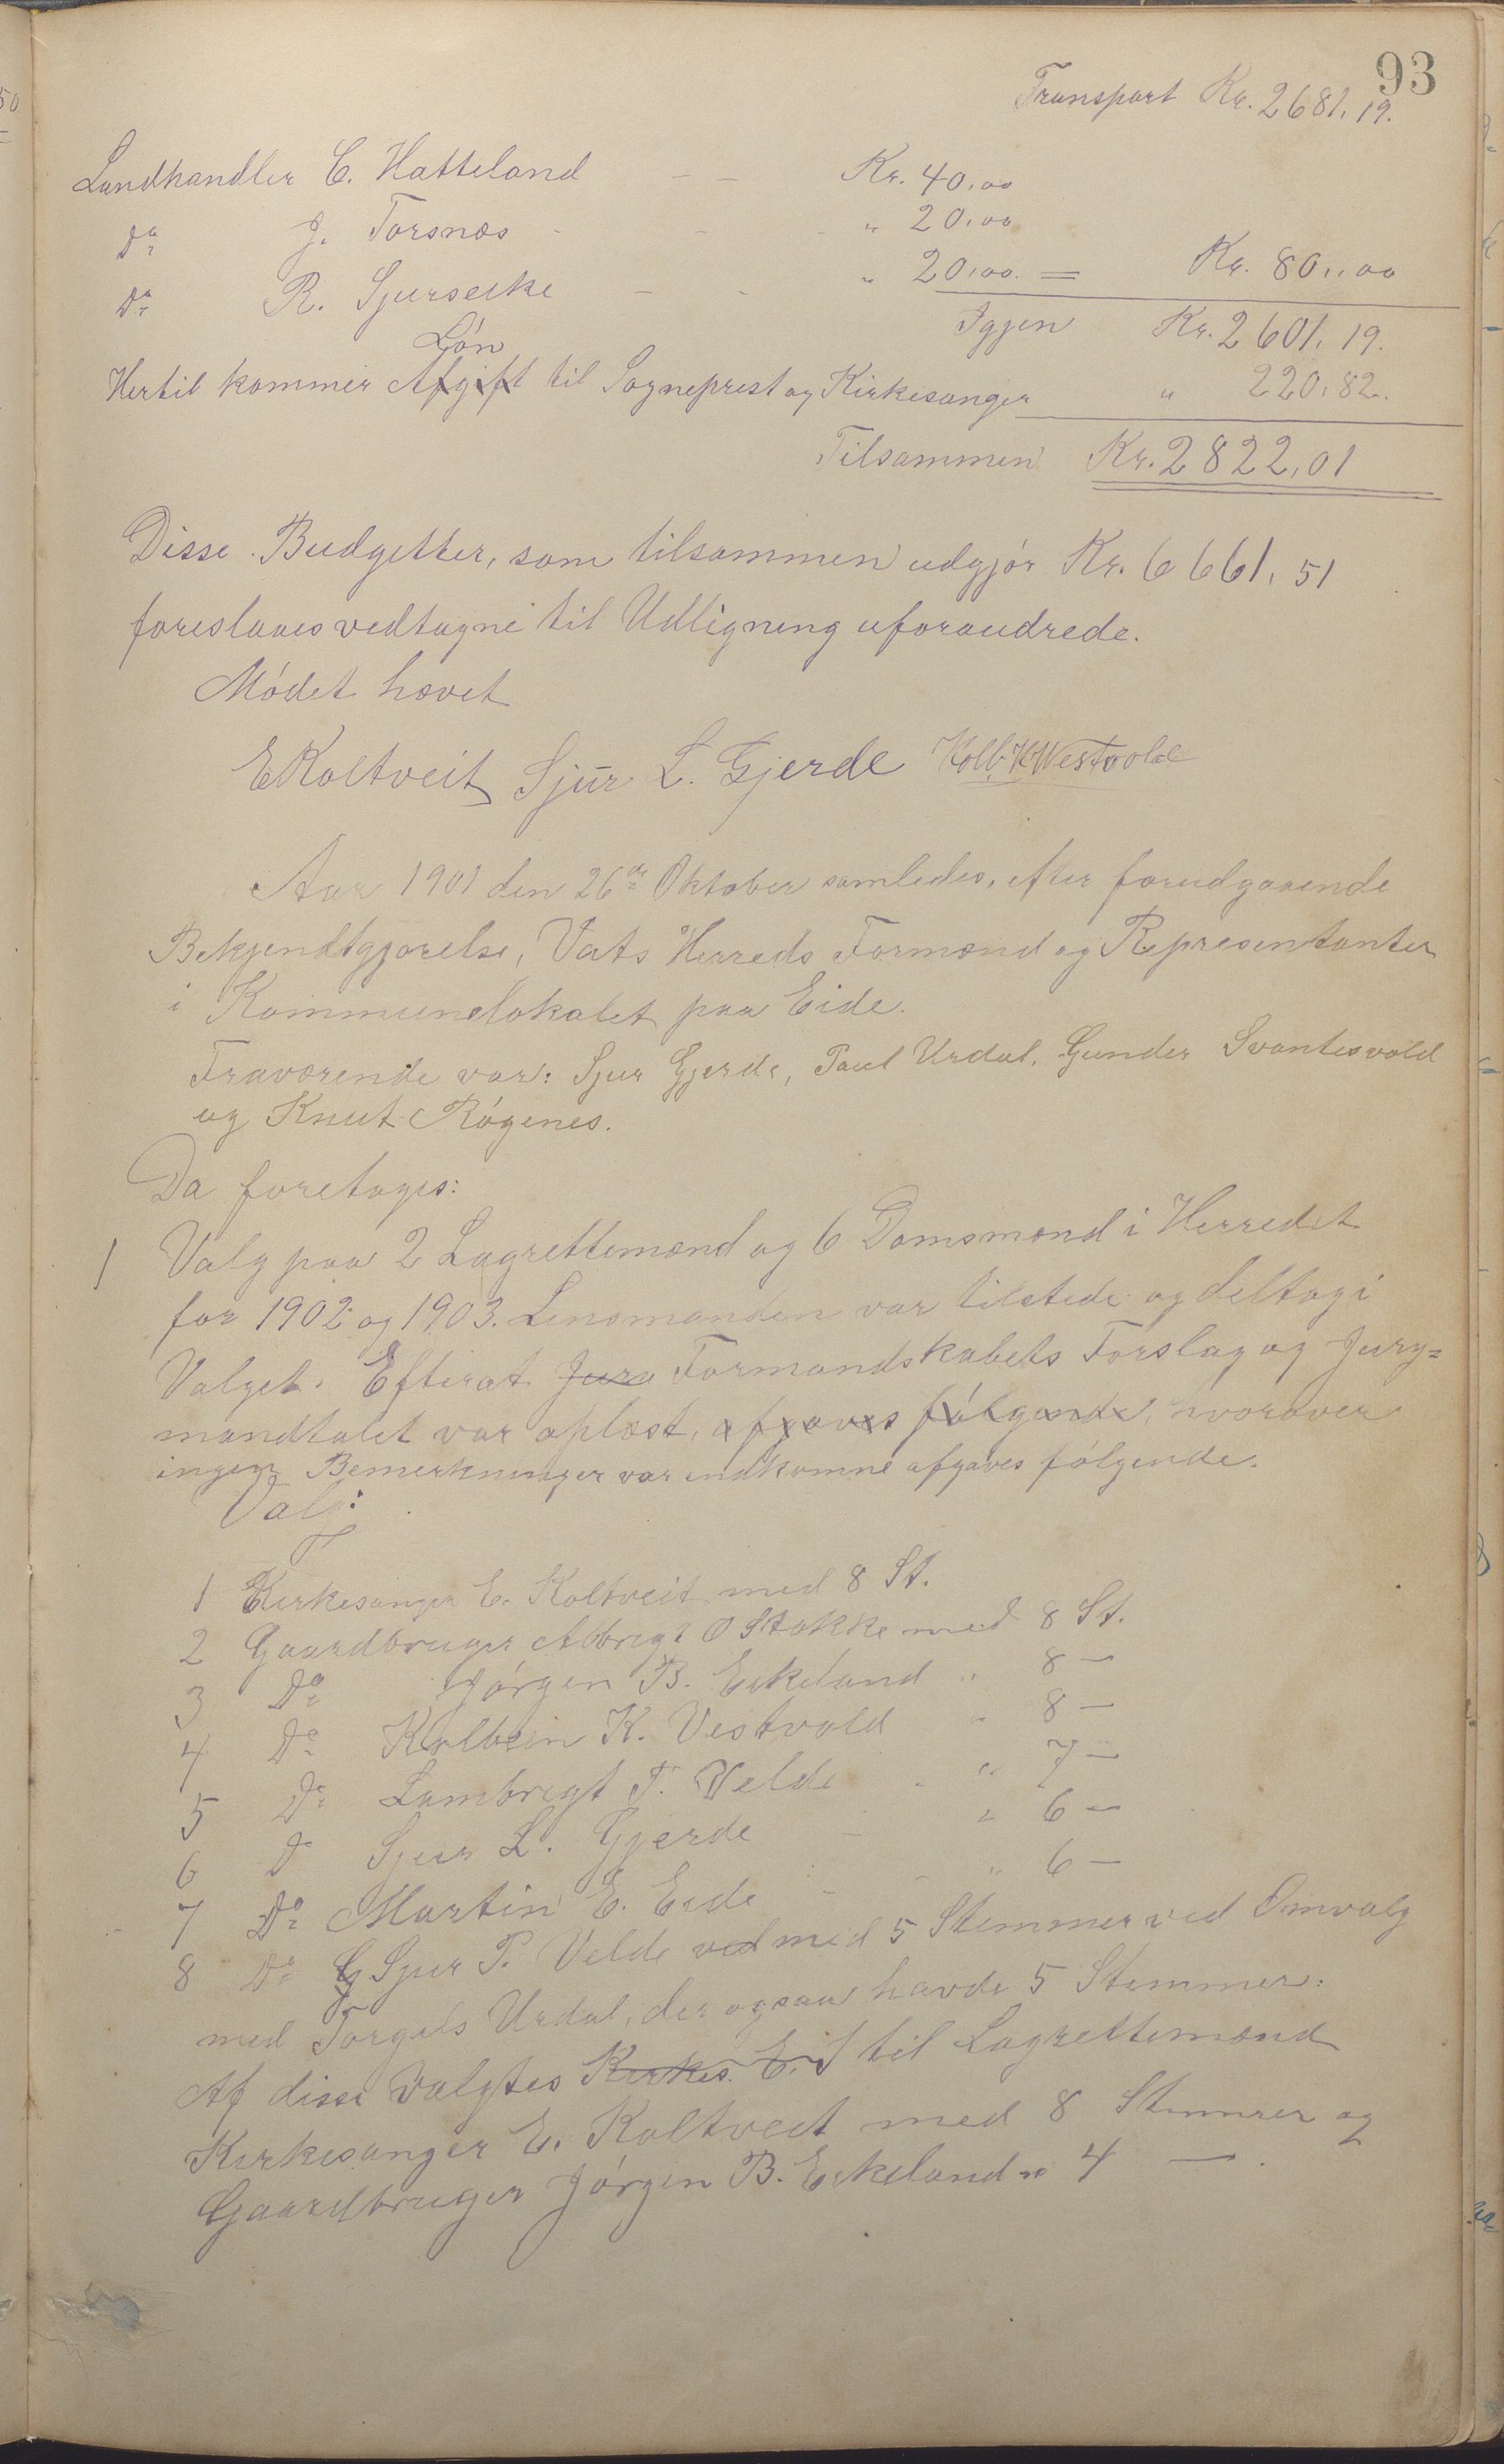 93
Transport Kr. 2681,19.
Landhandler C. Hatteland - - Kr. 40,00
Do J. Torsnæs - - - " 20,00
Do R. Sjurseike - - " 20,00. = Kr. 80,,00
Igjen Kr. 2601,19.
Løn
Hertil kommer Afgift til Sogneprest og Kirkesanger " 220,82.
Tilsammen Kr. 2822,01
Disse Budgetter, som tilsammen udgjør Kr. 6661,51
foreslaaes vedtagne til Udligning uforandrede.
Mødet hævet
E Koltveit Sjur L. Gjerde Kolb. K Westvold
Aar 1901 den 26de Oktober samledes, efter forudgaaende
Bekjendtgjørelse, Vats Herreds Formænd og Representanter
i Kommunelokalet paa Eide.
Fraværende var: Sjur Gjerde, Paul Urdal, Gunder Svantesvold
og Knut Røgenes.
Da foretoges:
1 Valg paa 2 Lagrettemænd og 6 Domsmænd i Herredet
for 1902 og 1903. Lensmanden var tilstede og deltog i
Valget. Efterat Jura Formandskabets Forslag og Jury=
mandtalet var oplæst, afgaves følgende, hvorover
ingen Bemerkninger var indkomne afgaves følgende.
Valg:
1 Kirkesanger E. Koltveit med 8 St.
2 Gaardbruger Albrigt O Stokke med 8 St.
3 Do Jørgen B. Eikeland " 8 —
4 Do Kolbein K. Vestvold " 8 —
5 Do Lambregt T. Velde " 7 —
6 Do Sjur L. Gjerde - " 6 —
7 Do Martin E. Eide - - " 6 —
8 Do G Sjur P. Velde ved med 5 Stemmer ved Omvalg
med Torgels Urdal, der ogsaa havde 5 Stemmer.
Af disse valgtes Kirkes. E. J til Lagrettemænd
Kirkesanger E. Koltveit med 8 Stemmer og
Gaardbruger Jørgen B. Eikeland " 4 — .